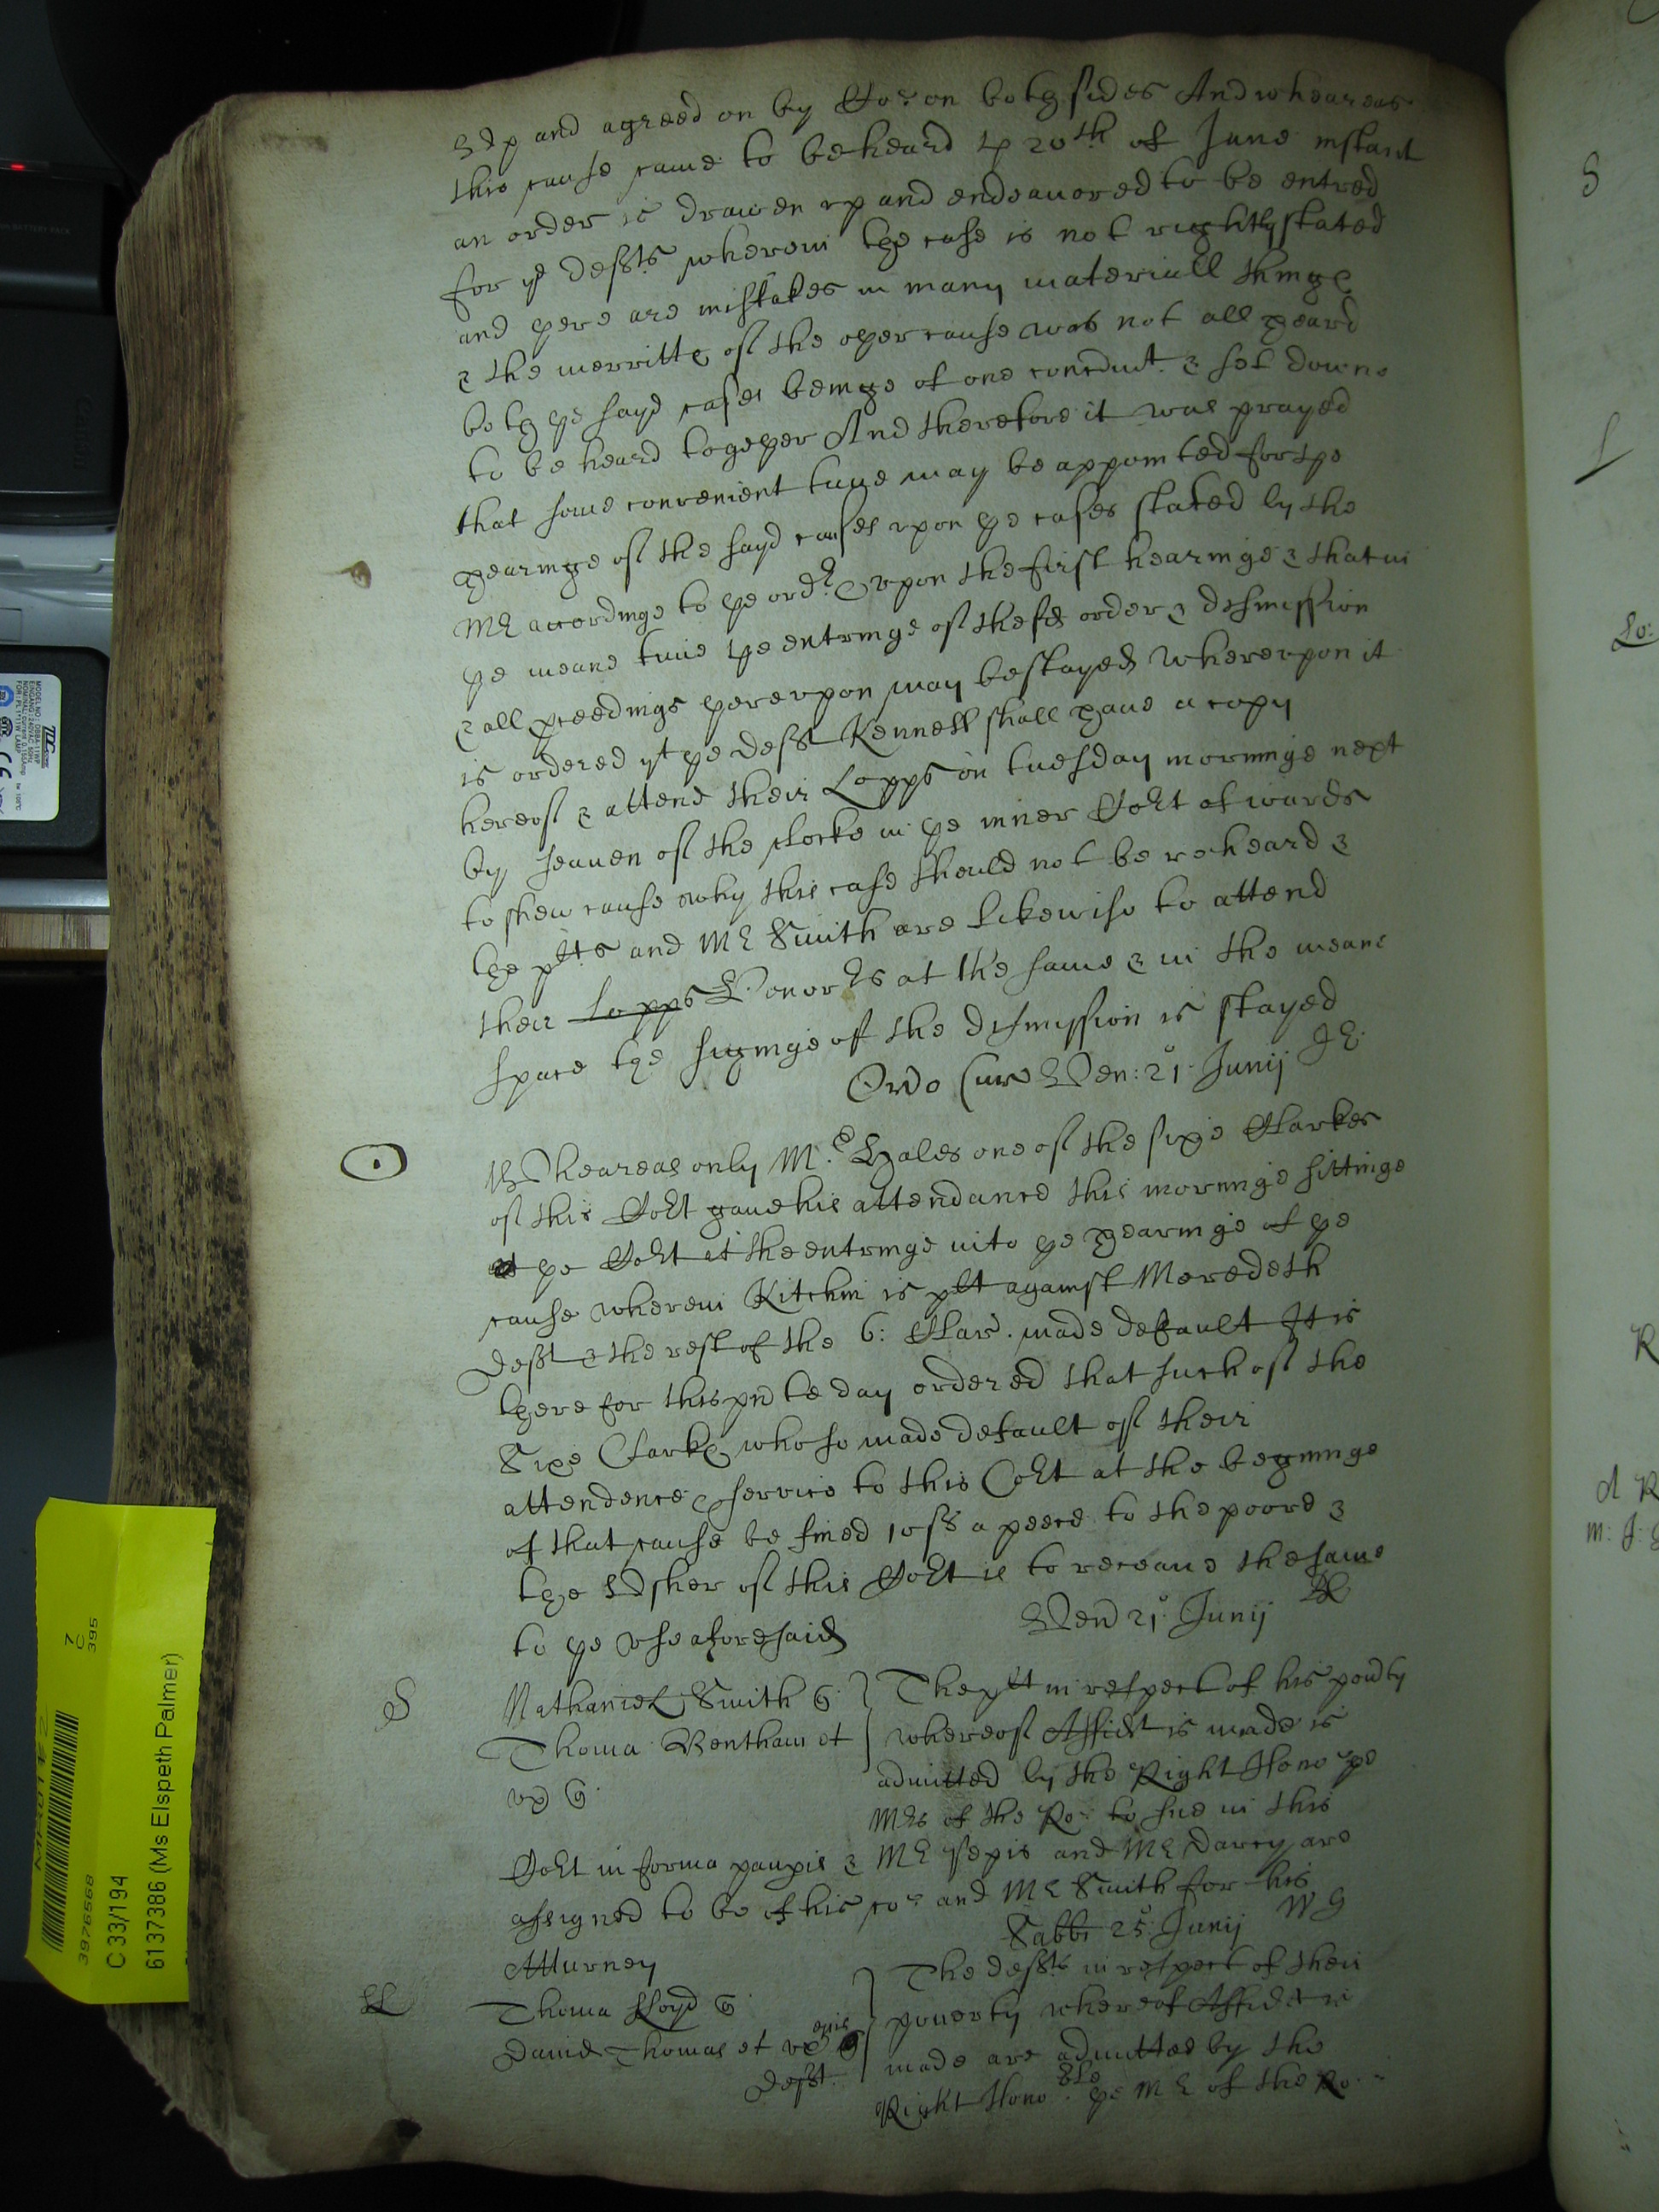 vp and agreed on by Cor on both sides And wheareas
this cause came to be heard ye 20th of June instant
an order is drawen vp and endeauored to be entred
for ye defts wherein the case is not rightly stated
and there are mistakes in many materiall things
& the merritts of the other cause was not all heard
both ye sayd cases beinge of one concernmt & set downe
to be heard together And therefore it was prayed
that some convenient time may be appointed for the
hearinge of the sayd causes vpon ye cases stated by the
Mr accordinge to ye ordr vpon the first hearinge & that in
ye meane time the entringe of the sd order & dismission
& all pceedings therevpon may be stayed Wherevpon it
is ordered yt ye deft Kennell shall haue a copy
hereof & attend their Lopps on tuesday morninge next
by seauen of the clocke in ye inner Cort of wards
to shew cause why this case should not be reheard &
the plts and Mr Smith are likewise to attend
their Lopps Honors at the same & in the meane
space the signinge of the dismission is stayed
Ordo Cur Ven: 21o Junij JE
Wheareas only Mr Hales one of the sixe Clarkes
of this Cort gaue his attendance this morninge sittinge
at ye Cort at the entringe into ye hearinge of ye
cause wherein Kitchin is plt against Meredeth
deft & the rest of the 6: Clar. made default It is
there for this pnte day ordered that such of the
Sixe Clarks who so made default of their
attendence & service to this Cort at the beginninge
of that cause be fined 10ss a peece to the poore &
the Vsher of this Cort is to receaue the same
to ye vse aforesaid Ven 21o Junij
S Nathaniel Smith Q The plt in respect of his pouerty
Thoma Bentham et whereof Affidt is made is
vx Q admitted by the Right Hono ye
Mrs of the Ro: to sue in this
Cort in forma paupis & Mr and Mr Darcy are
assigned to be of his cor and Mr Smith for his
Atturney Sabbi 25o Junij WG
Ll Thoma Lloyd Q The defts in respect of their
Dauid Thomas et vx pouerty whereof Affidt is
deft. made are admitted by the
Right Honoble ye Mr of the Ro:
3976568
7
C
395
C 33/194
6137386 (Ms Elspeth Palmer)